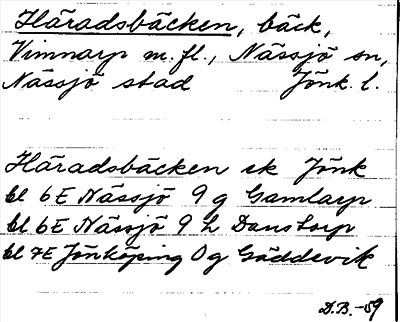 Häradsbäcken, bäck,
Vimnarp m.fl., Nässjö sn,
Nässjö stad Jönk. l.
Häradsbäcken ek Jönk
bl 6E Nässjö 9 g Gamlarp
bl 6E Nässjö 9 h Danstorp
bl 7E Jönköping 0 g Gäddevik
D.B.-59